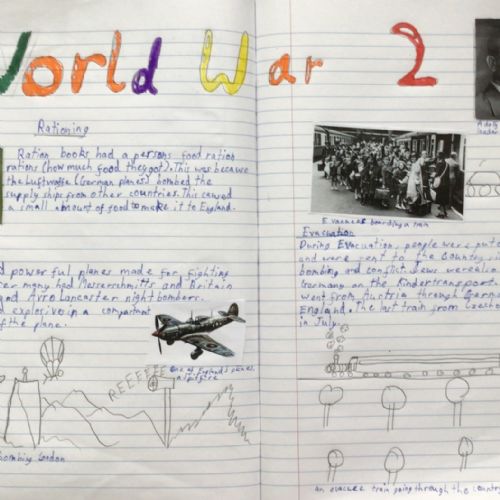 World War 2
Rationing
Ration books had a persons food ration
rations (how much food they got). This was because
the Luftwaffe (German planes) bombed the
supply ships from other countries. This caused
a small amount of food to make it to England.
powerful planes made for fighting
many had Messerschmitts and Britain
Avro Lancaster night bombers.
explosive in a compartment
of the plane.
One of England's planes,
a spitfire
REEEEEE
bombing London
Adolf
leader
Evacuees boarding a train
Evacuation
During Evacuation, people were put
and were sent to the Country si
bombing and conflict. Jews were also
Germany on the Kindertransport.
went from Austria through Germ
England. The last train from Czecho
in July.
an evacuee train going through the country